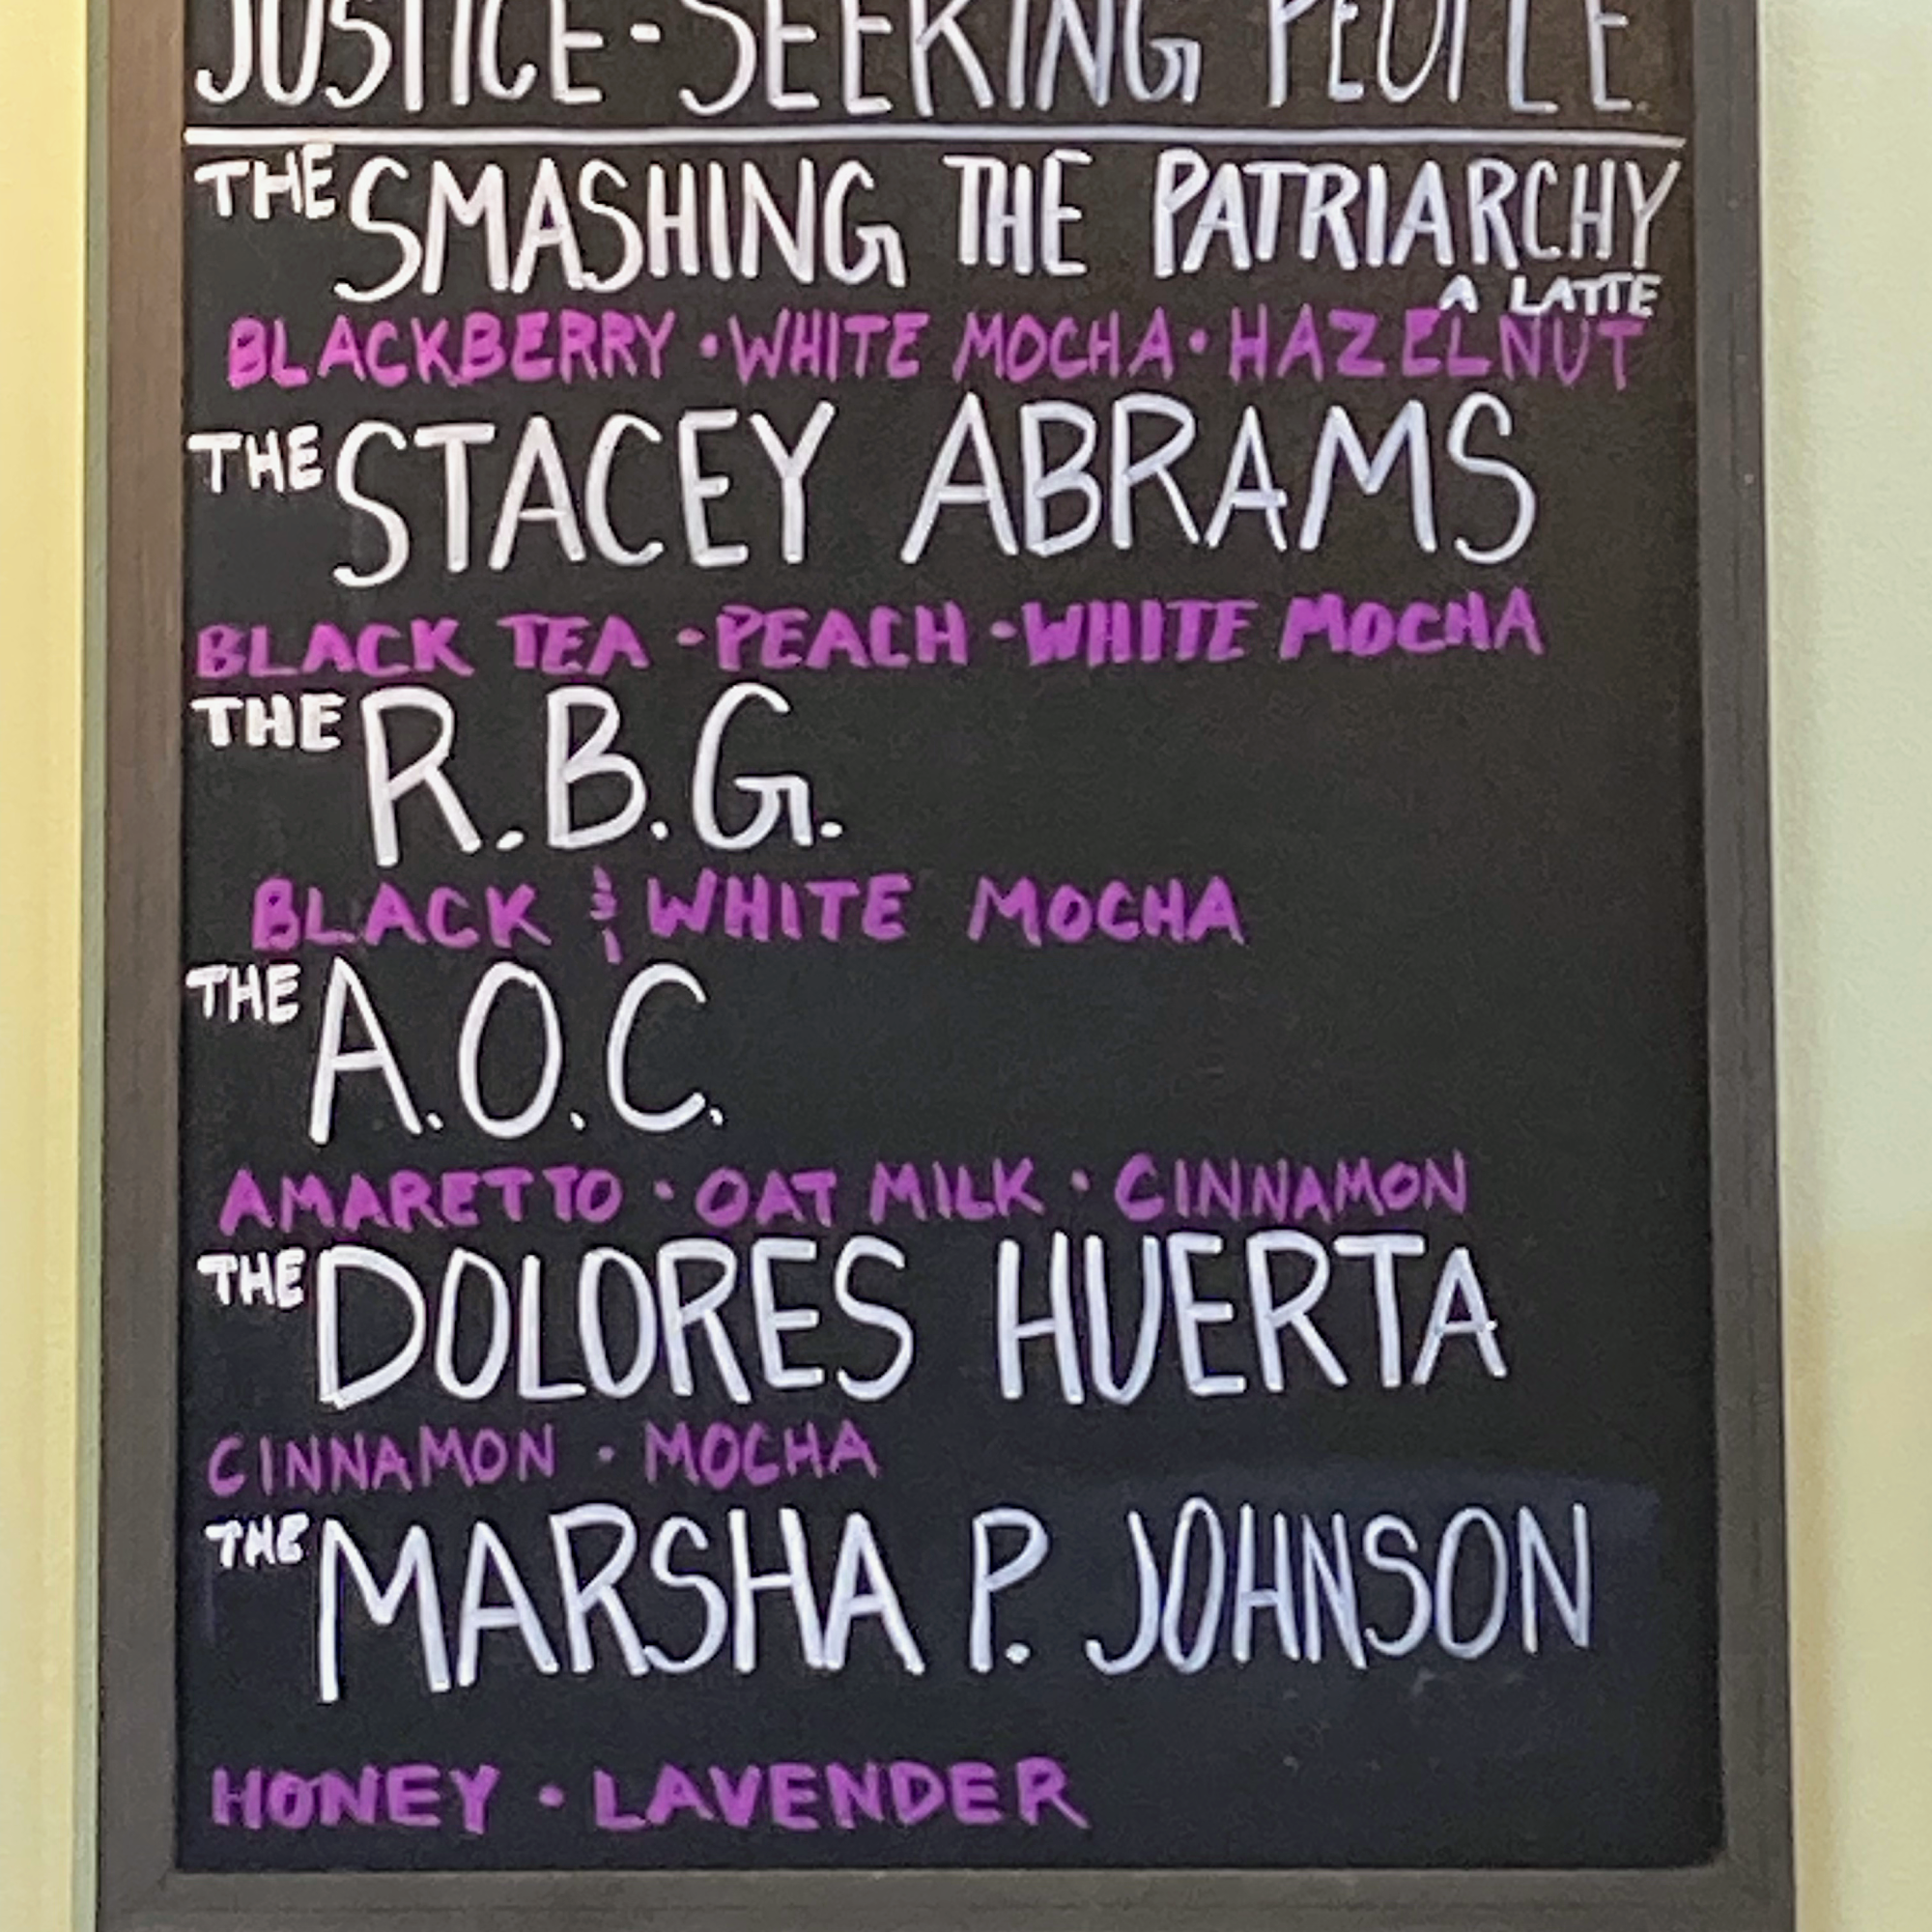 JUSTICE-SEEKING PEOPLE
THE SMASHING THE PATRIARCHY
A LATTE
BLACKBERRY • WHITE MOCHA • HAZELNUT
THE STACEY ABRAMS
BLACK TEA • PEACH • WHITE MOCHA
THE R.B.G.
BLACK & WHITE MOCHA
THE A.O.C.
AMARETTO • OAT MILK • CINNAMON
THE DOLORES HUERTA
CINNAMON • MOCHA
THE MARSHA P. JOHNSON
HONEY • LAVENDER